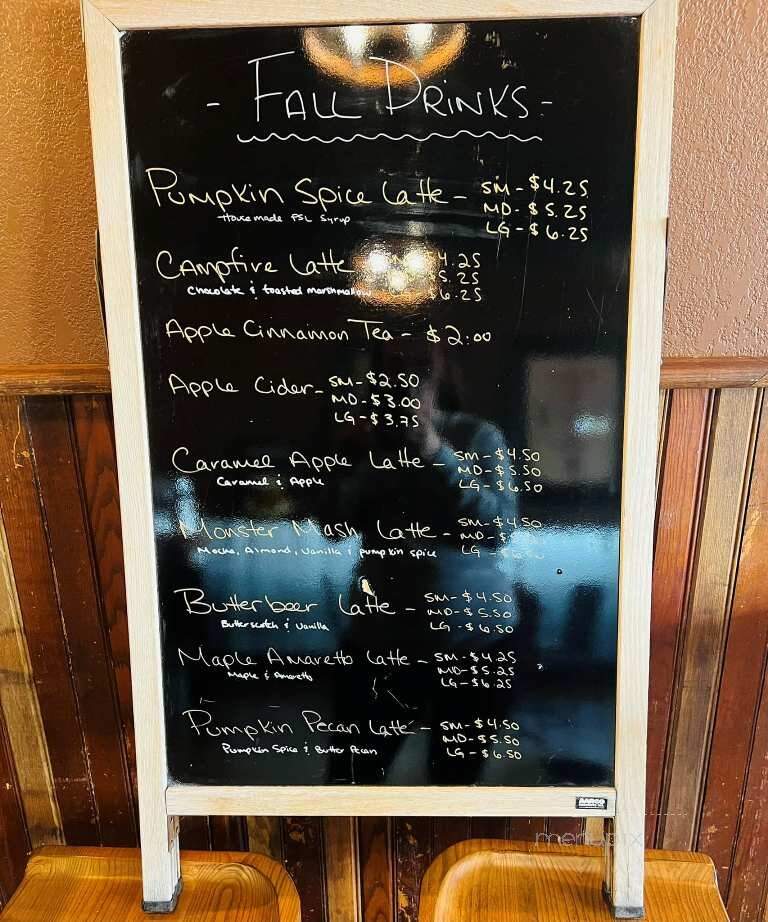 - FALL DRINKS -
Pumpkin Spice Latte - SM - $4.25
House made PSL Syrup MD - $5.25
LG - $6.25
Campfire Latte 4.25
$5.25
Chocolate & toasted marshmallow 6.25
Apple Cinnamon Tea - $2.00
Apple Cider - SM - $2.50
MD - $3.00
LG - $3.75
Caramel Apple Latte - SM - $4.50
MD - $5.50
Caramel & Apple LG - $6.50
Monster Mash Latte - SM - $4.50
MD - $
Mocha, Almond, Vanilla & pumpkin spice LG -
Butterbeer Latte - SM - $4.50
MD - $5.50
Butterscotch & Vanilla LG - $6.50
Maple Amaretto Latte - SM - $4.25
Maple & Amaretto MD - $5.25
LG - $6.25
Pumpkin Pecan Latte - SM - $4.50
MD - $5.50
Pumpkin Spice & Butter Pecan LG - $6.50
AARCO
menupix